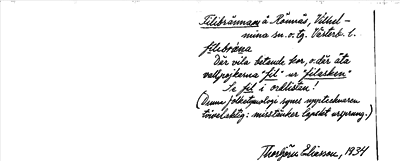 Filibrännan å Rönnäs, Vilhel-
mina sn. o. tg. Västerb. l.
filibräna
Där vila betande kor, o. där äta
vallpojkarna "fil" ur "filasken"
Se fil i ordlistan!
(Denna folketymologi synes upptecknaren
tvivelaktig: misstänker lapskt ursprung.)
Thorbjörn Eliasson, 1934